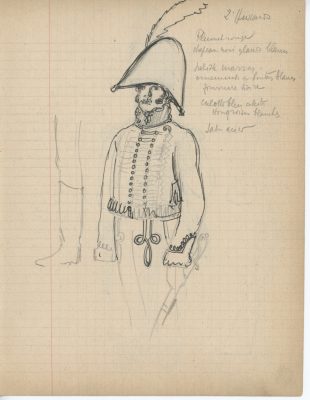 2e Hussards
Plumet rouge
chapeau noir glands blancs
pelisse marron
ornements et boutons blancs
fourrure noire
culotte bleu céleste
hongroises blanches